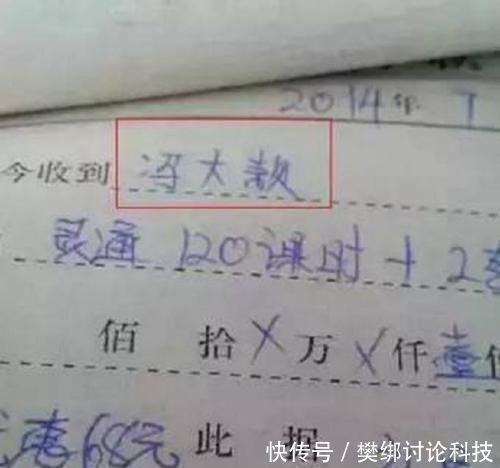 2014年 7
今收到 冯大款
灵通 120课时+2套
佰 拾 X 万 X 仟 壹
惠68元 此据
快传号 / 樊绑讨论科技